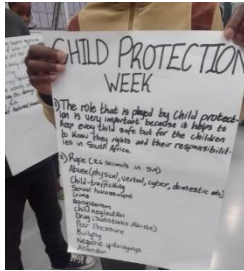 CHILD PROTECTION
WEEK
1) The role that is played by Child protect-
ion is very important because it helps to
keep every child safe but for the children
to know they rights and their responsibilit-
ies in South Africa.
2) Rape (26 seconds in SA)
Abuse (physical, verbal, cyber, domestic etc)
Child-trafficking
Sexual harassment
Crime
Child neglection
Drug (Substance Abuse)
Peer Pressure
Bullying
Negative upbringings